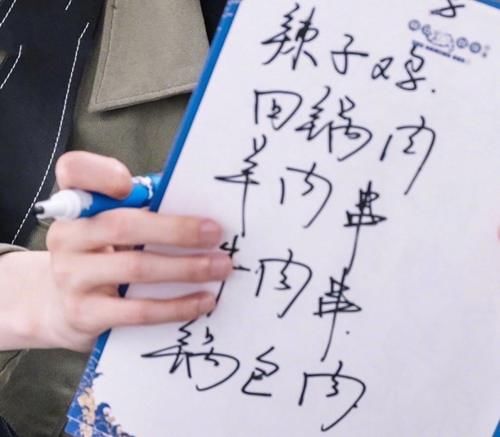 辣子鸡.
回锅肉
羊肉串
牛肉串.
锅包肉